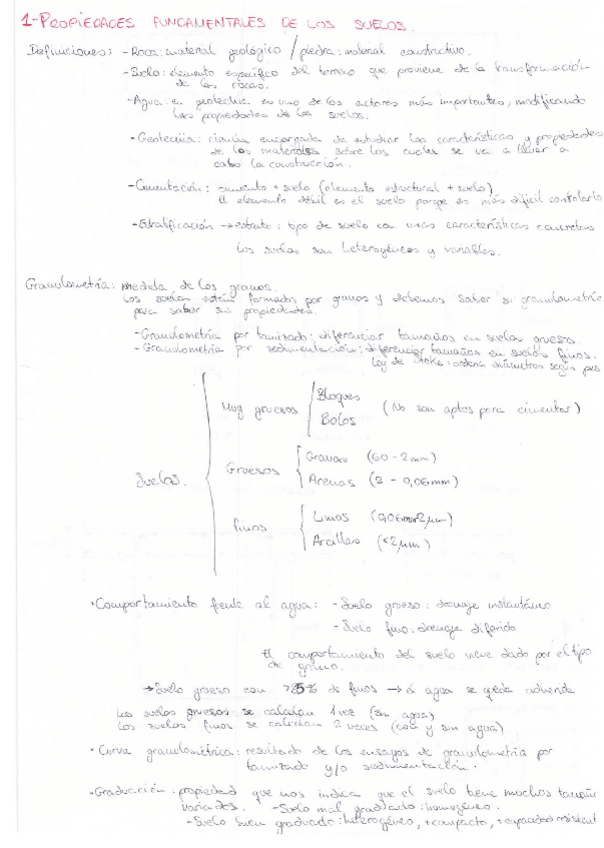 1-PROPIEDADES FUNDAMENTALES DE LOS SUELOS.
Definiciones: -Roca: material geológico / piedra: material constructivo.
-Suelo: elemento específico del terreno que proviene de la transformación
de las rocas.
-Agua: en geotecnia es uno de los actores más importantes, modificando
las propiedades de los suelos.
-Geotecnia: ciencia encargada de estudiar las características y propiedades
de los materiales sobre los cuales se va a llevar a
cabo la construcción.
-Cimentación: cimiento + suelo (elemento estructural + suelo)
El elemento débil es el suelo porque es más difícil controlarlo
-Estratificación → estrato: tipo de suelo con unas características concretas
Los suelos son heterogéneos y variables.
Granulometría: medida de los granos.
Los suelos están formados por granos y debemos saber su granulometría
para saber sus propiedades.
-Granulometría por tamizado: diferenciar tamaños en suelos gruesos.
-Granulometría por sedimentación: diferenciar tamaños en suelos finos.
Ley de Stoke: ordena diámetros según pes
Muy gruesos Bloques
Bolos (No son aptos para cimentar)
Gruesos Gravas (60-2mm)
Suelos Arenas (2 - 0,06mm)
Finos Limos (0,06mm 2μm)
Arcillas (<2μm)
·Comportamiento frente al agua: -Suelo grueso: drenaje instantáneo
-Suelo fino: drenaje diferido
El comportamiento del suelo viene dado por el tipo
de grano.
→Suelo grueso con % de finos → el agua se queda
Los suelos gruesos se calculan 1 vez (sin agua)
Los suelos finos se calculan 2 veces (con y sin agua)
·Curva granulométrica: resultado de los ensayos de granulometría por
tamizado y/o sedimentación.
·Graduación: propiedad que nos indica que el suelo tiene muchos tamaños
variados. -Suelo mal graduado: homogéneo.
-Suelo bien graduado: heterogéneo, +compacto, +capacidad resistent